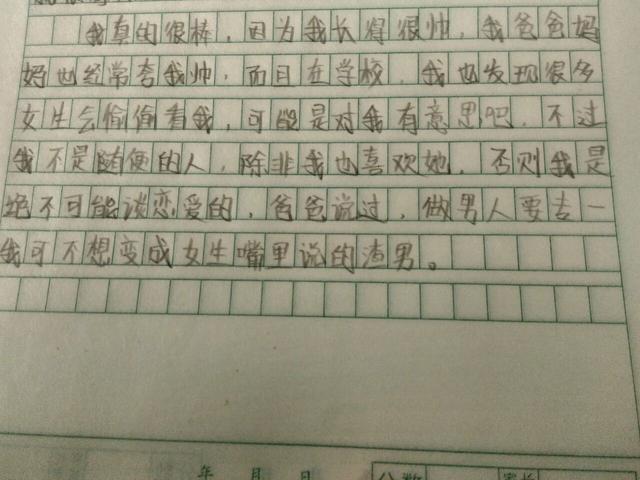 我真的很棒，因为我长得很帅，我爸爸妈
妈也经常夸我帅，而且在学校，我也发现很多
女生会偷偷看我，可能是对我有意思吧，不过
我不是随便的人，除非我也喜欢她，否则我是
绝不可能谈恋爱的，爸爸说过，做男人要专一
我可不想变成女生嘴里说的渣男。
年 月 日
分数 家长